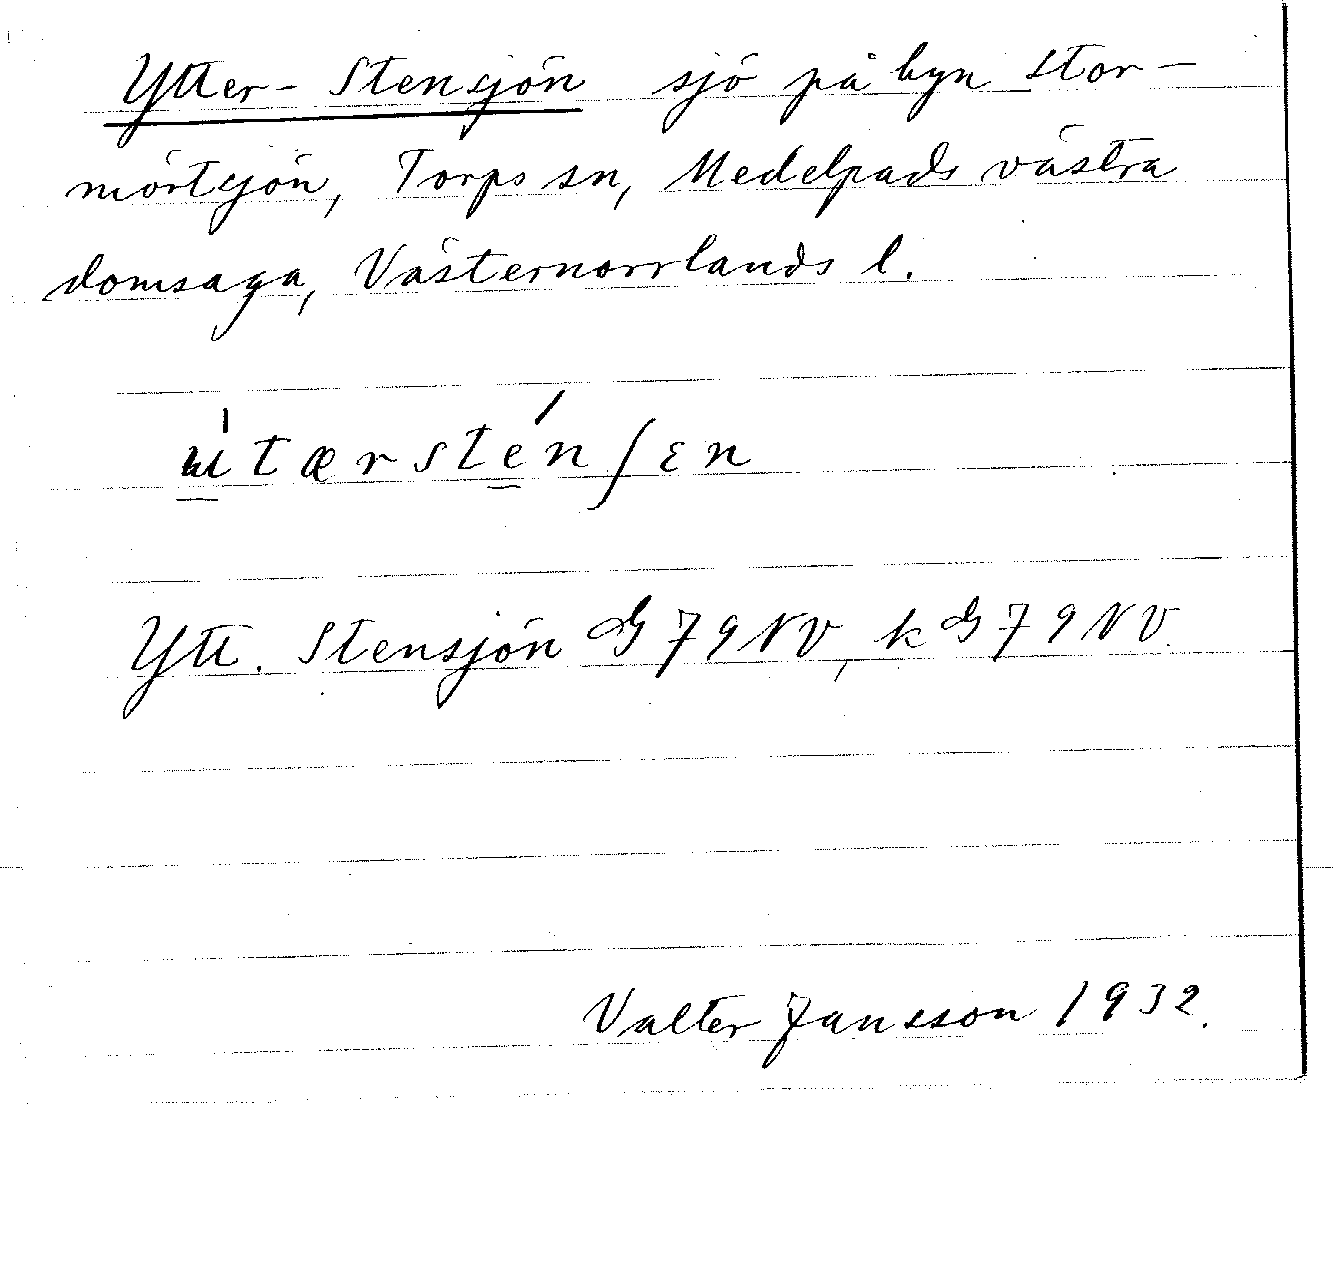 Ytter-Stensjön sjö på byn Stor-
mörtsjön, Torps sn, Medelpads västra
domsaga, Västernorrlands l.
Ytt. Stensjön G79NV, kG79NV.
Valter Jansson 1932.